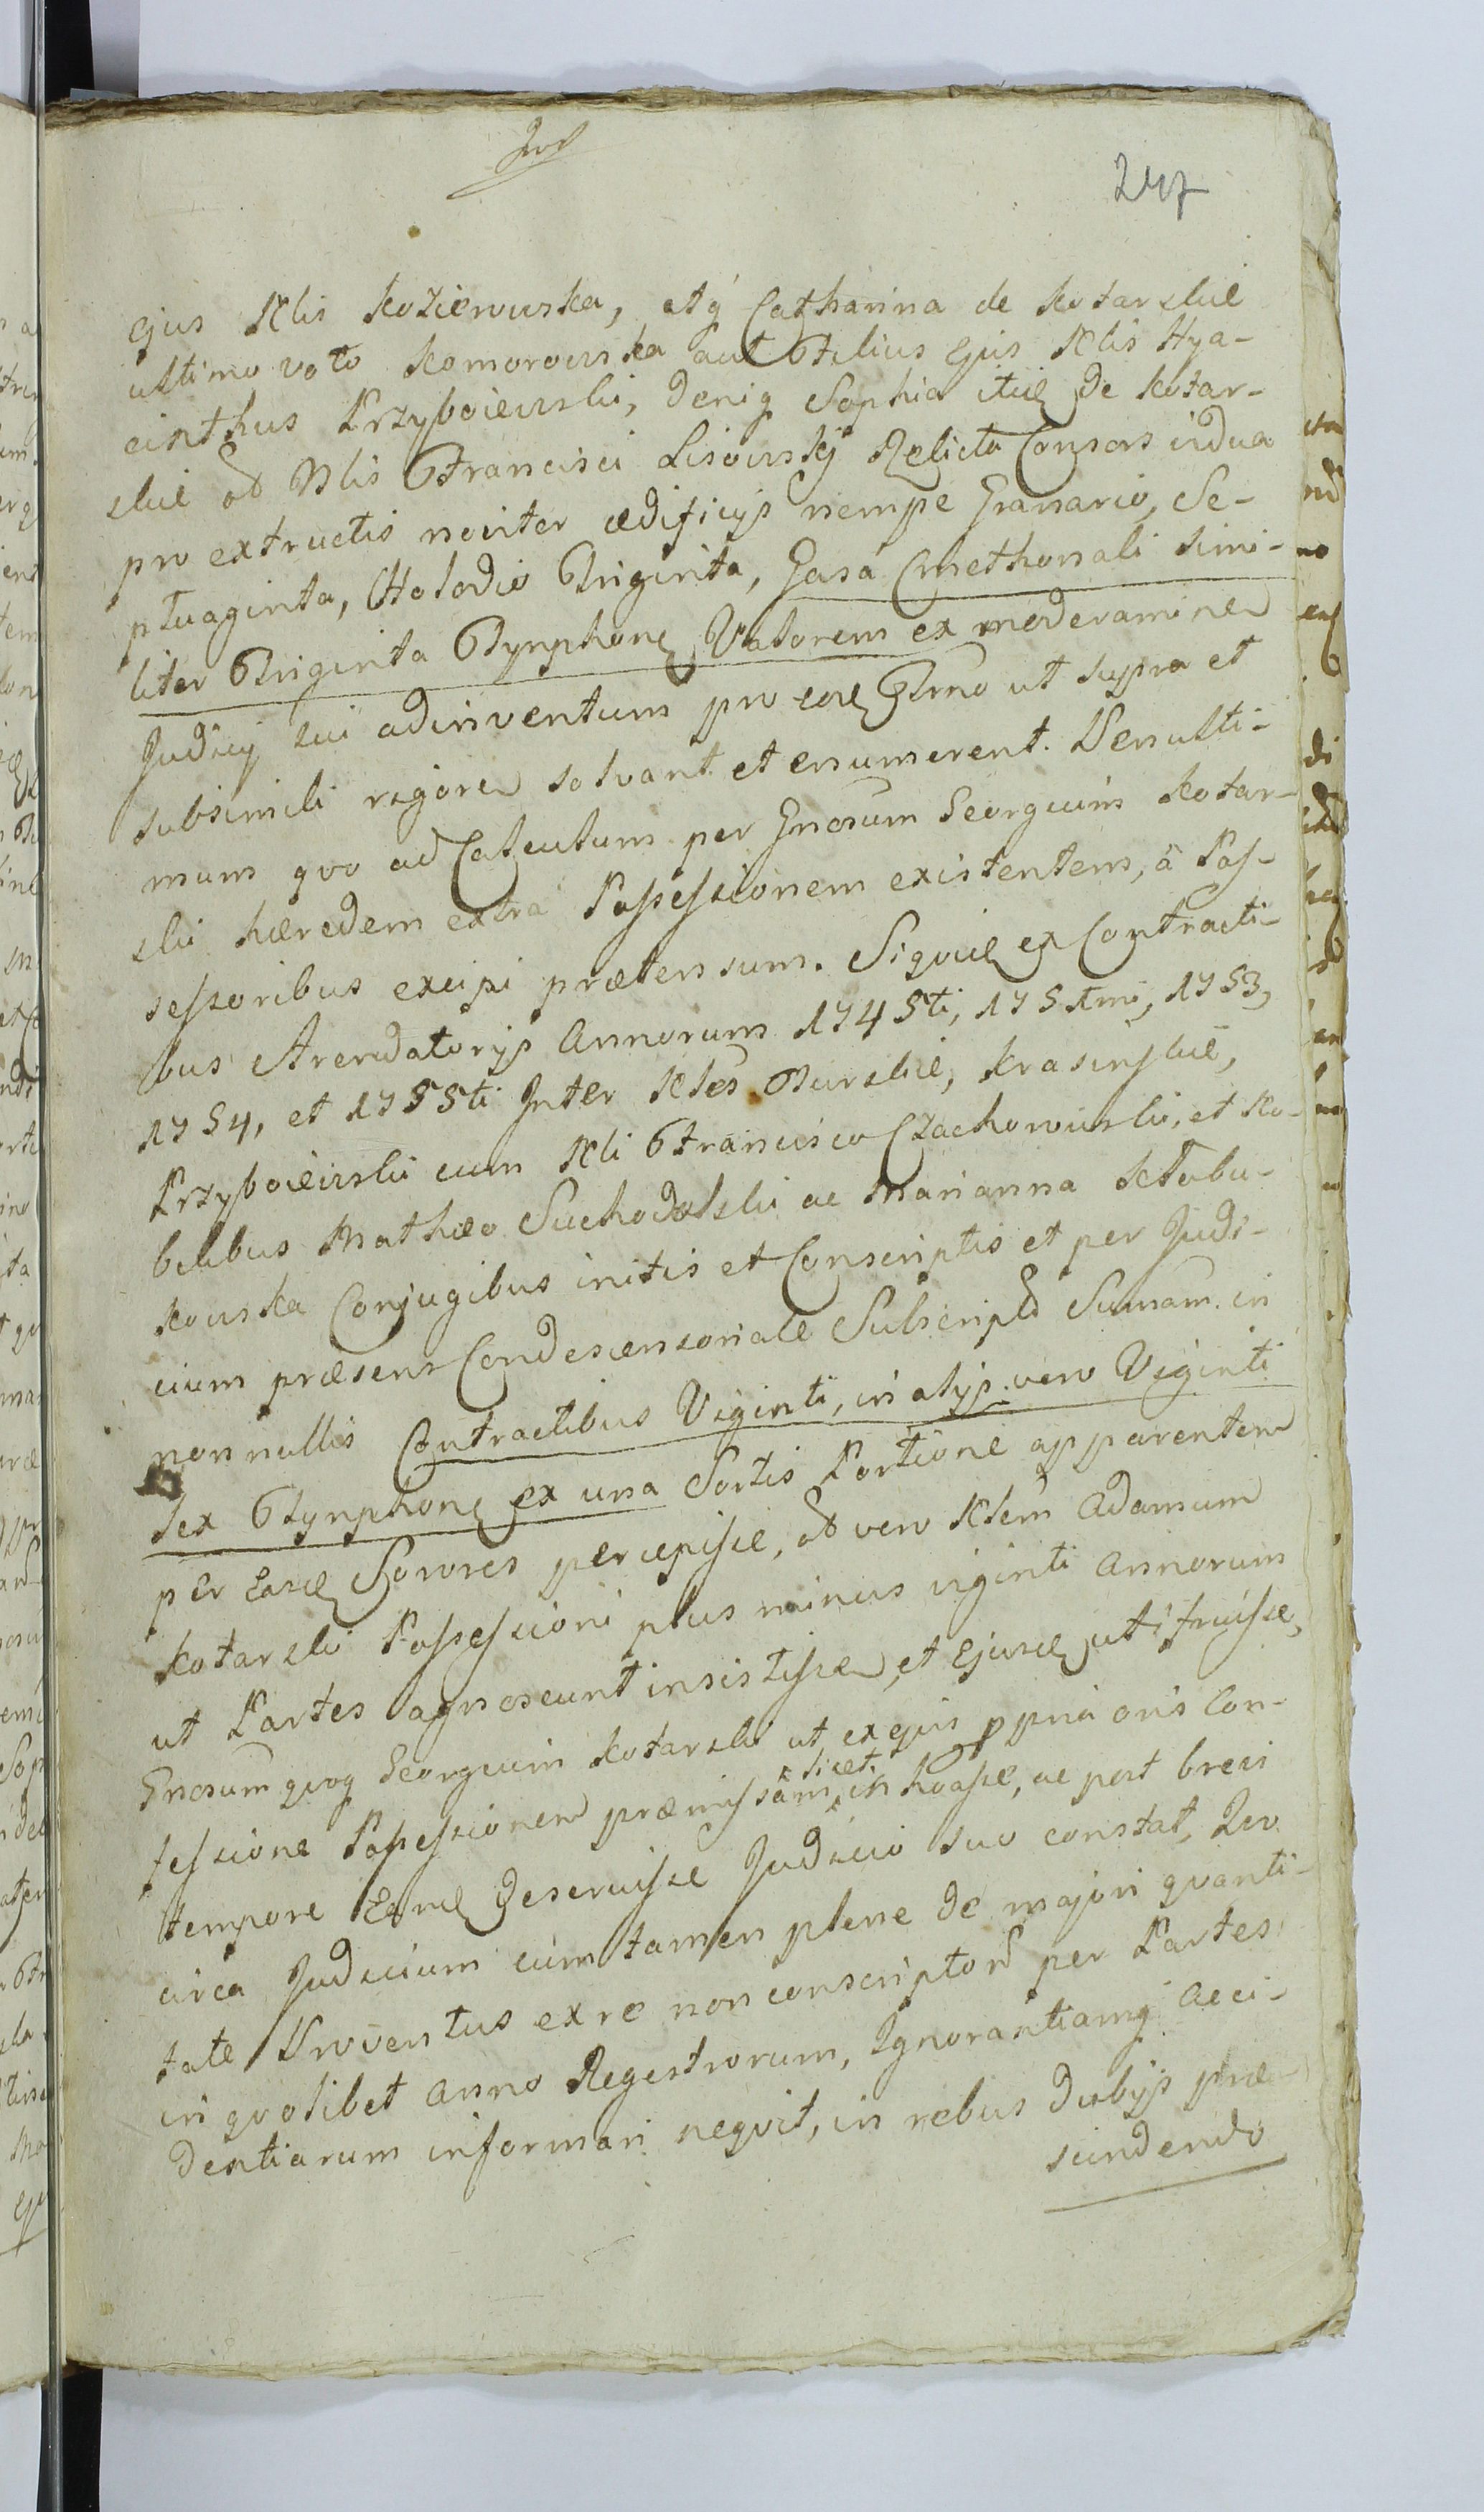 247
ejus Nlis Kozierowska, atq Catharina de Kotarskie
ultimo voto Komorowska aut Filius Ejus Nlis Hya-
cinthus Przyboiewski, deniq Sophia itid de Kotar-
skie od Nlis Francisci Lisowsky Relicta Consors vidua
pro extructis noviter ædificijs nempe Granario, Se-
ptuaginta, Holodio Triginta, Gasa Cmethonali simi-
liter Triginta Tynphone Valorem ex moderamine
Judicij sui adinventum pro eod Tmo ut supra et
subsimili rigore solvant et enumerent. Penulti-
mum quo ad Calculum per Gnosum Georgium Kotar-
ski hæredem extra Possessionem existentem, à Pos-
sessoribus excipi prætensum. Siquid ex Contracti-
bus Arendatorijs Annorum 1745ti, 1751mi, 1753,
1754, et 1755ti Inter Nles Turskie, Krasinskie,
Przyboiewski cum Nli Francisco Czachowski, et No-
bilibus Mathæo Suchodolski ac Marianna Kłobu-
kowska Conjugibus initis et Conscriptis et per Judi-
cium præsens Condescensoriale Subscript Sumam in
non nullis Contractibus Viginti, in alijs vero Viginti
sex Tynphone ex una Sortis Portione apparentem
per Easd Sorores percepisse, od vero Nlem Adamum
Kotarski Possessioni plus minus viginti Annorum
ut Partes agnoscunt insistisse, et Ejusd uti fruisse,
Gnosum quoq Georgium Kotarski ut ex ejus ppria oris Con-
fessione Possessionem præmissam licet inhoasse, ac post brevi
tempore Eand Deseruisse Judicio suo constat, Quo
circa Judicium cum tamen plene de majori quanti-
tate Proventus ex re non conscriptor per Partes
in quolibet anno Regestrorum, Ignorantiamq Acci-
dentiarum informari nequit, in rebus Dubijs præ-
scindendo